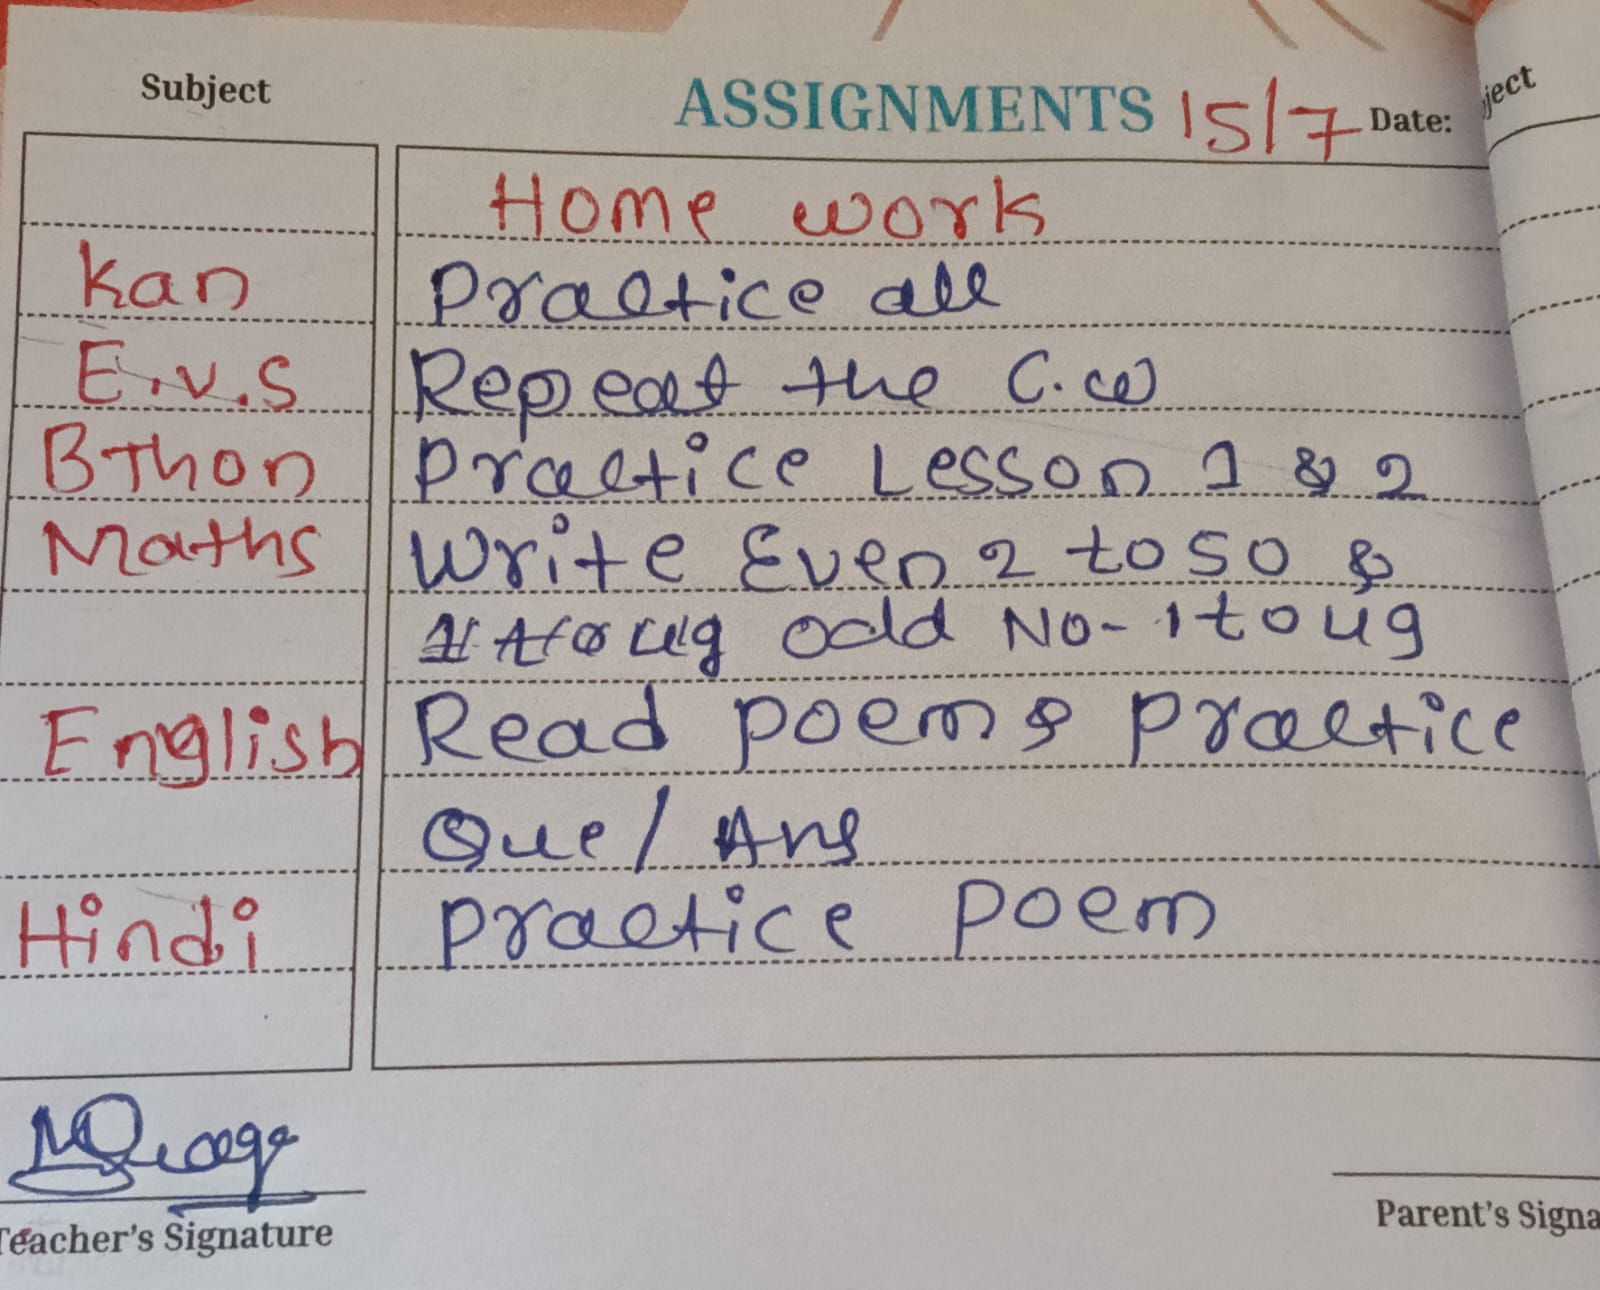 Subject ASSIGNMENTS 15/7 Date: ject
Home work
Kan Practice all
E.V.S Repeat the C.W
BThon Practice Lesson 1 & 2
Maths Write Even 2 to 50 &
odd No- 1 to 49
English Read poem & Practice
Que/ Ans
Hindi Practice Poem
Teacher's Signature Parent's Signa